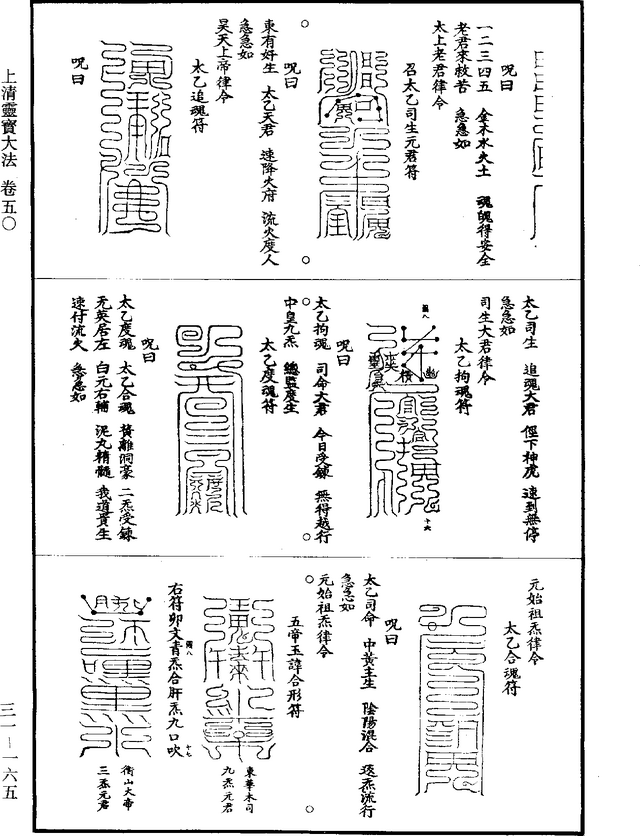 上清靈寶大法 卷五〇
三一—一六五
呪曰
一二三四五 金木水火土 魂魄得安全
老君來救苦 急急如
太上老君律令
召太乙司生元君符
呪曰
東有好生 太乙天君 速降火府 流火度人
急急如
昊天上帝律令
太乙追魂符
呪曰
太乙司生 追魂大君 徑下神虎 速到無停
急急如
司生大君律令
太乙拘魂符
呪曰
太乙拘魂 司命大君 今日受鍊 無得越行
中皇九炁 總監度生
太乙度魂符
呪曰
太乙度魂 太乙合魂 黃離洞豪 二炁受鍊
无英居左 白元右輔 泥丸精髓 我道貴生
速付流火 急急如
元始祖炁律令
太乙合魂符
呪曰
太乙司命 中黃主生 陰陽混合 返炁流行
急急如
元始祖炁律令
五帝玉諱合形符
東華木司
九炁元君
右符卯文青炁合肝炁九口吹
衡山大帝
三炁元君